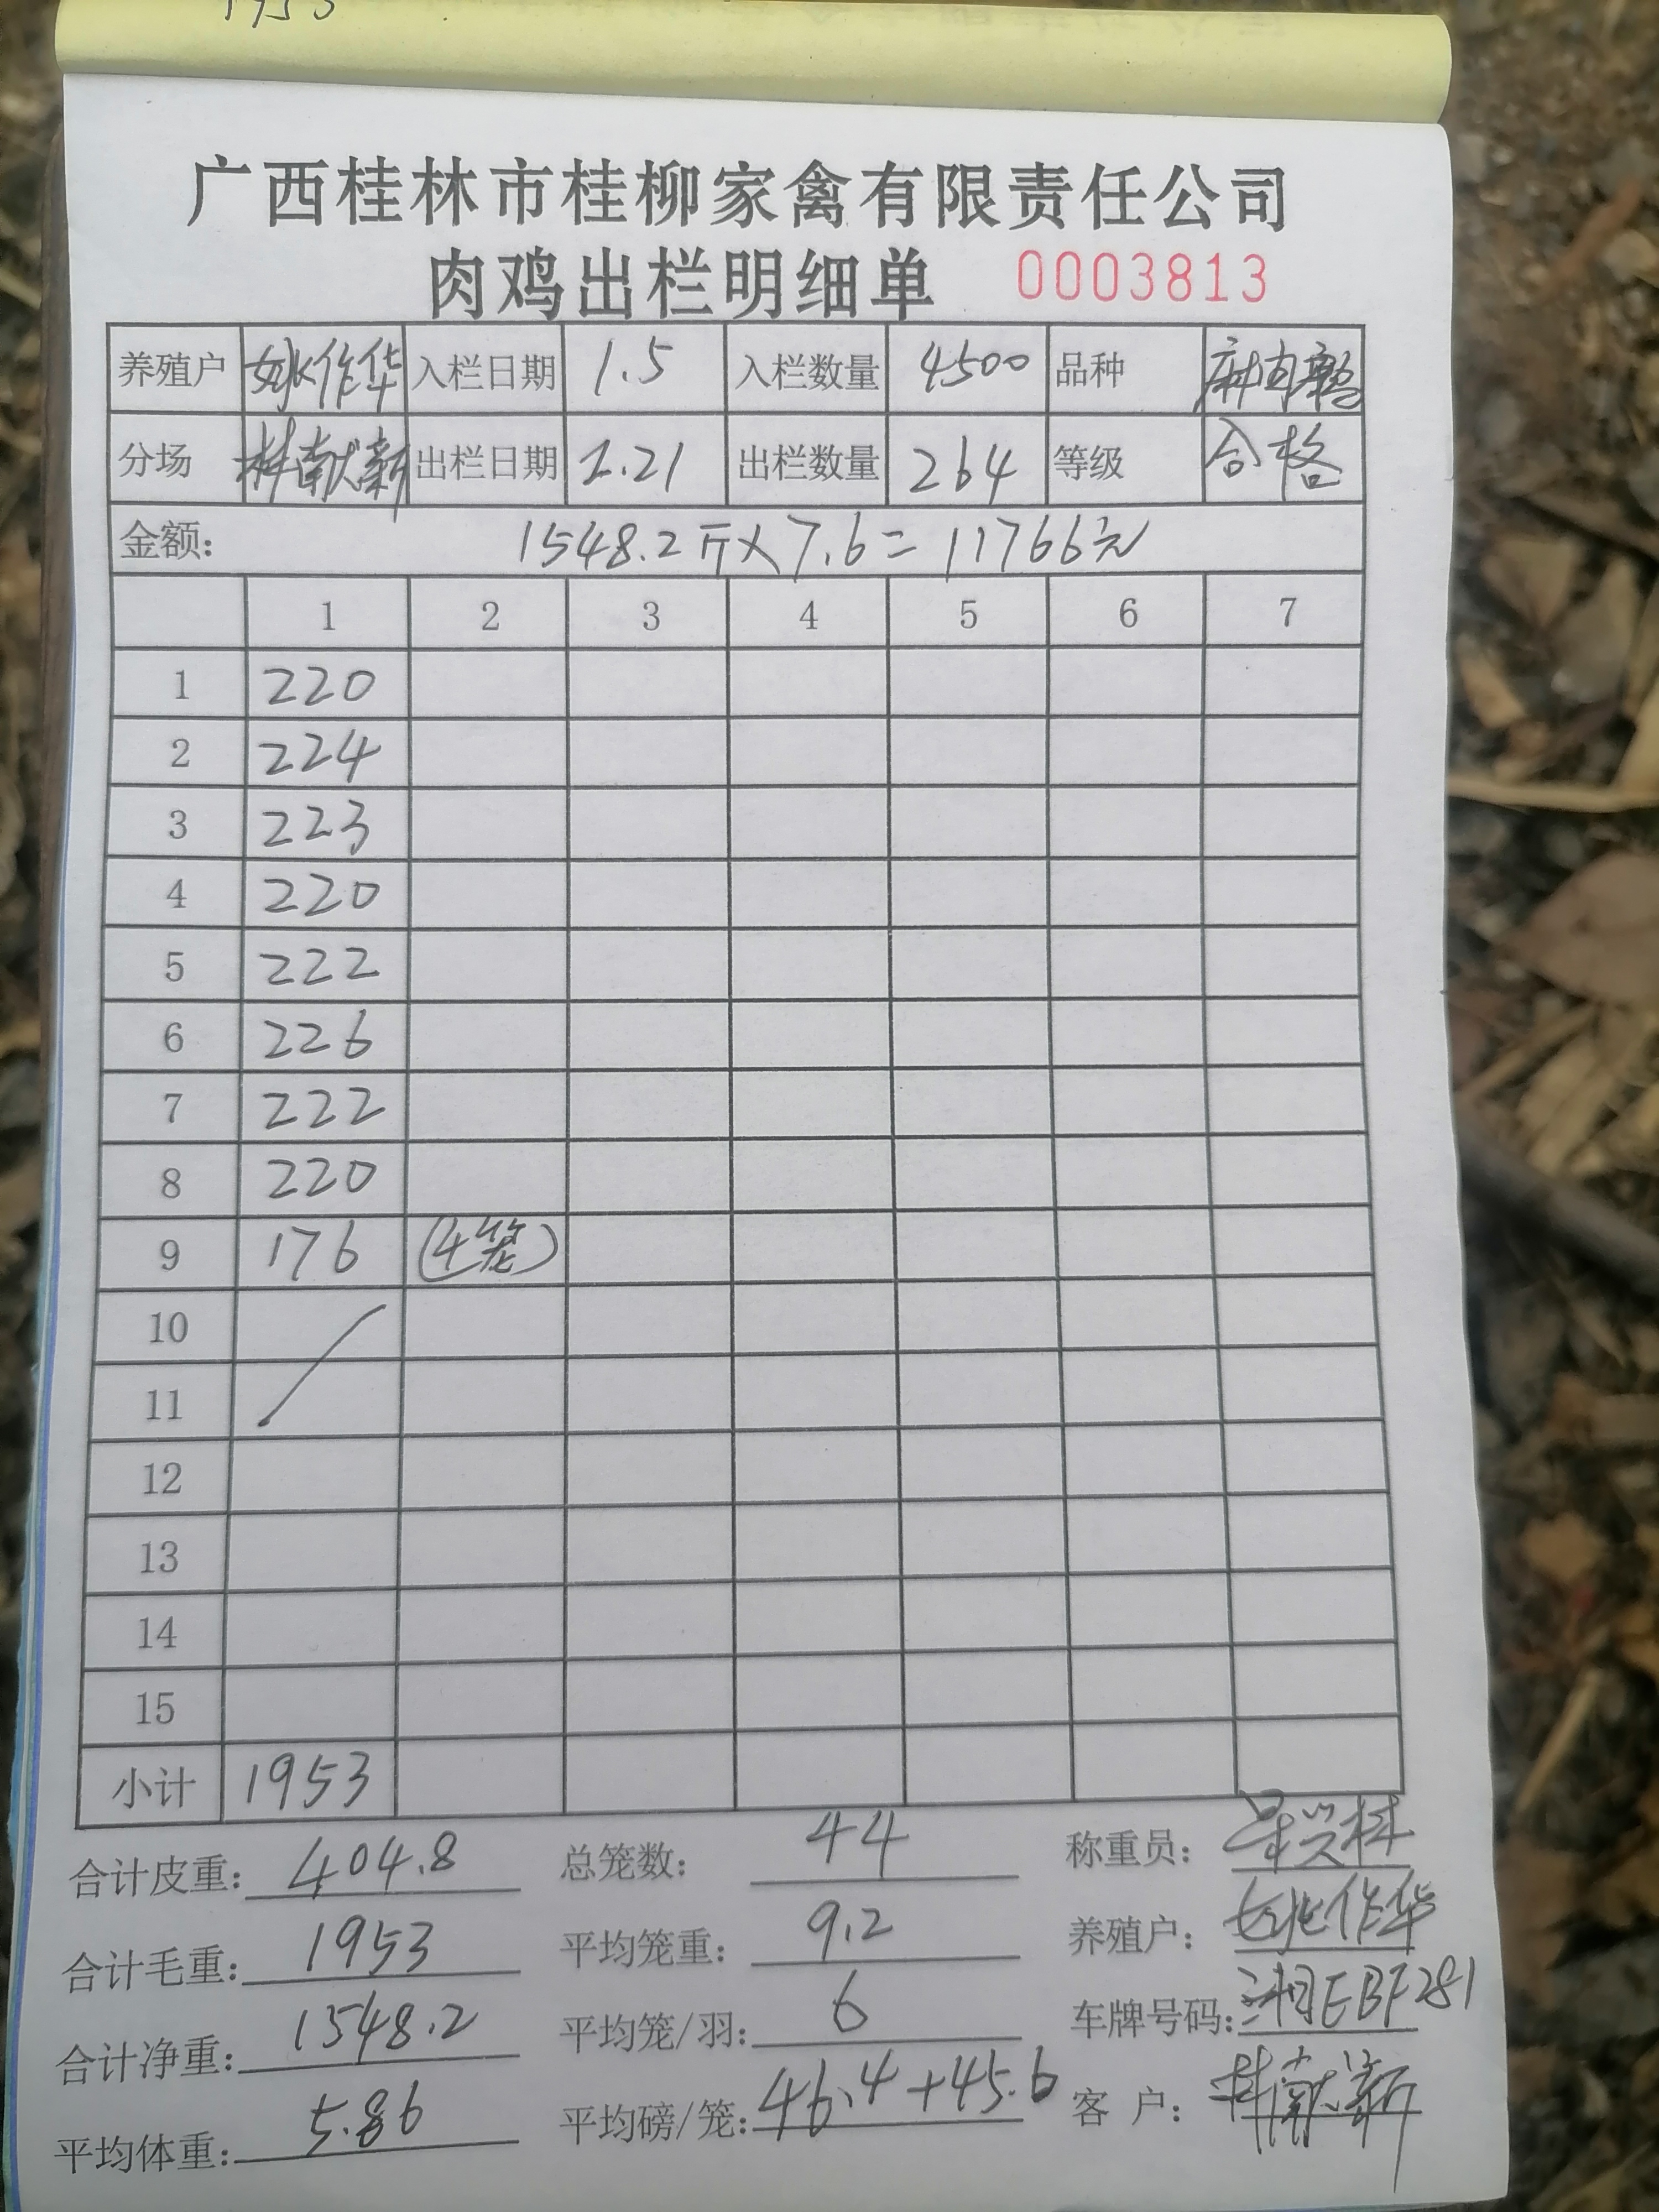 1953
广西桂林市桂柳家禽有限责任公司
肉鸡出栏明细单 0003813
养殖户 姚作华 入栏日期 1.5 入栏数量 4500 品种 麻肉鸡
分场 林献新 出栏日期 2.21 出栏数量 264 等级 合格
金额: 1548.2斤×7.6=11766元
1 2 3 4 5 6 7
1 220
2 224
3 223
4 220
5 222
6 226
7 222
8 220
9 176 (4笼)
10
11
12
13
14
15
小计 1953
合计皮重: 404.8 总笼数: 44 称重员:
合计毛重: 1953 平均笼重: 9.2 养殖户: 姚作华
合计净重: 1548.2 平均笼/羽: 6 车牌号码: 湘EBF281
平均体重: 5.86 平均磅/笼: 46.4+45.6 客 户: 林献新